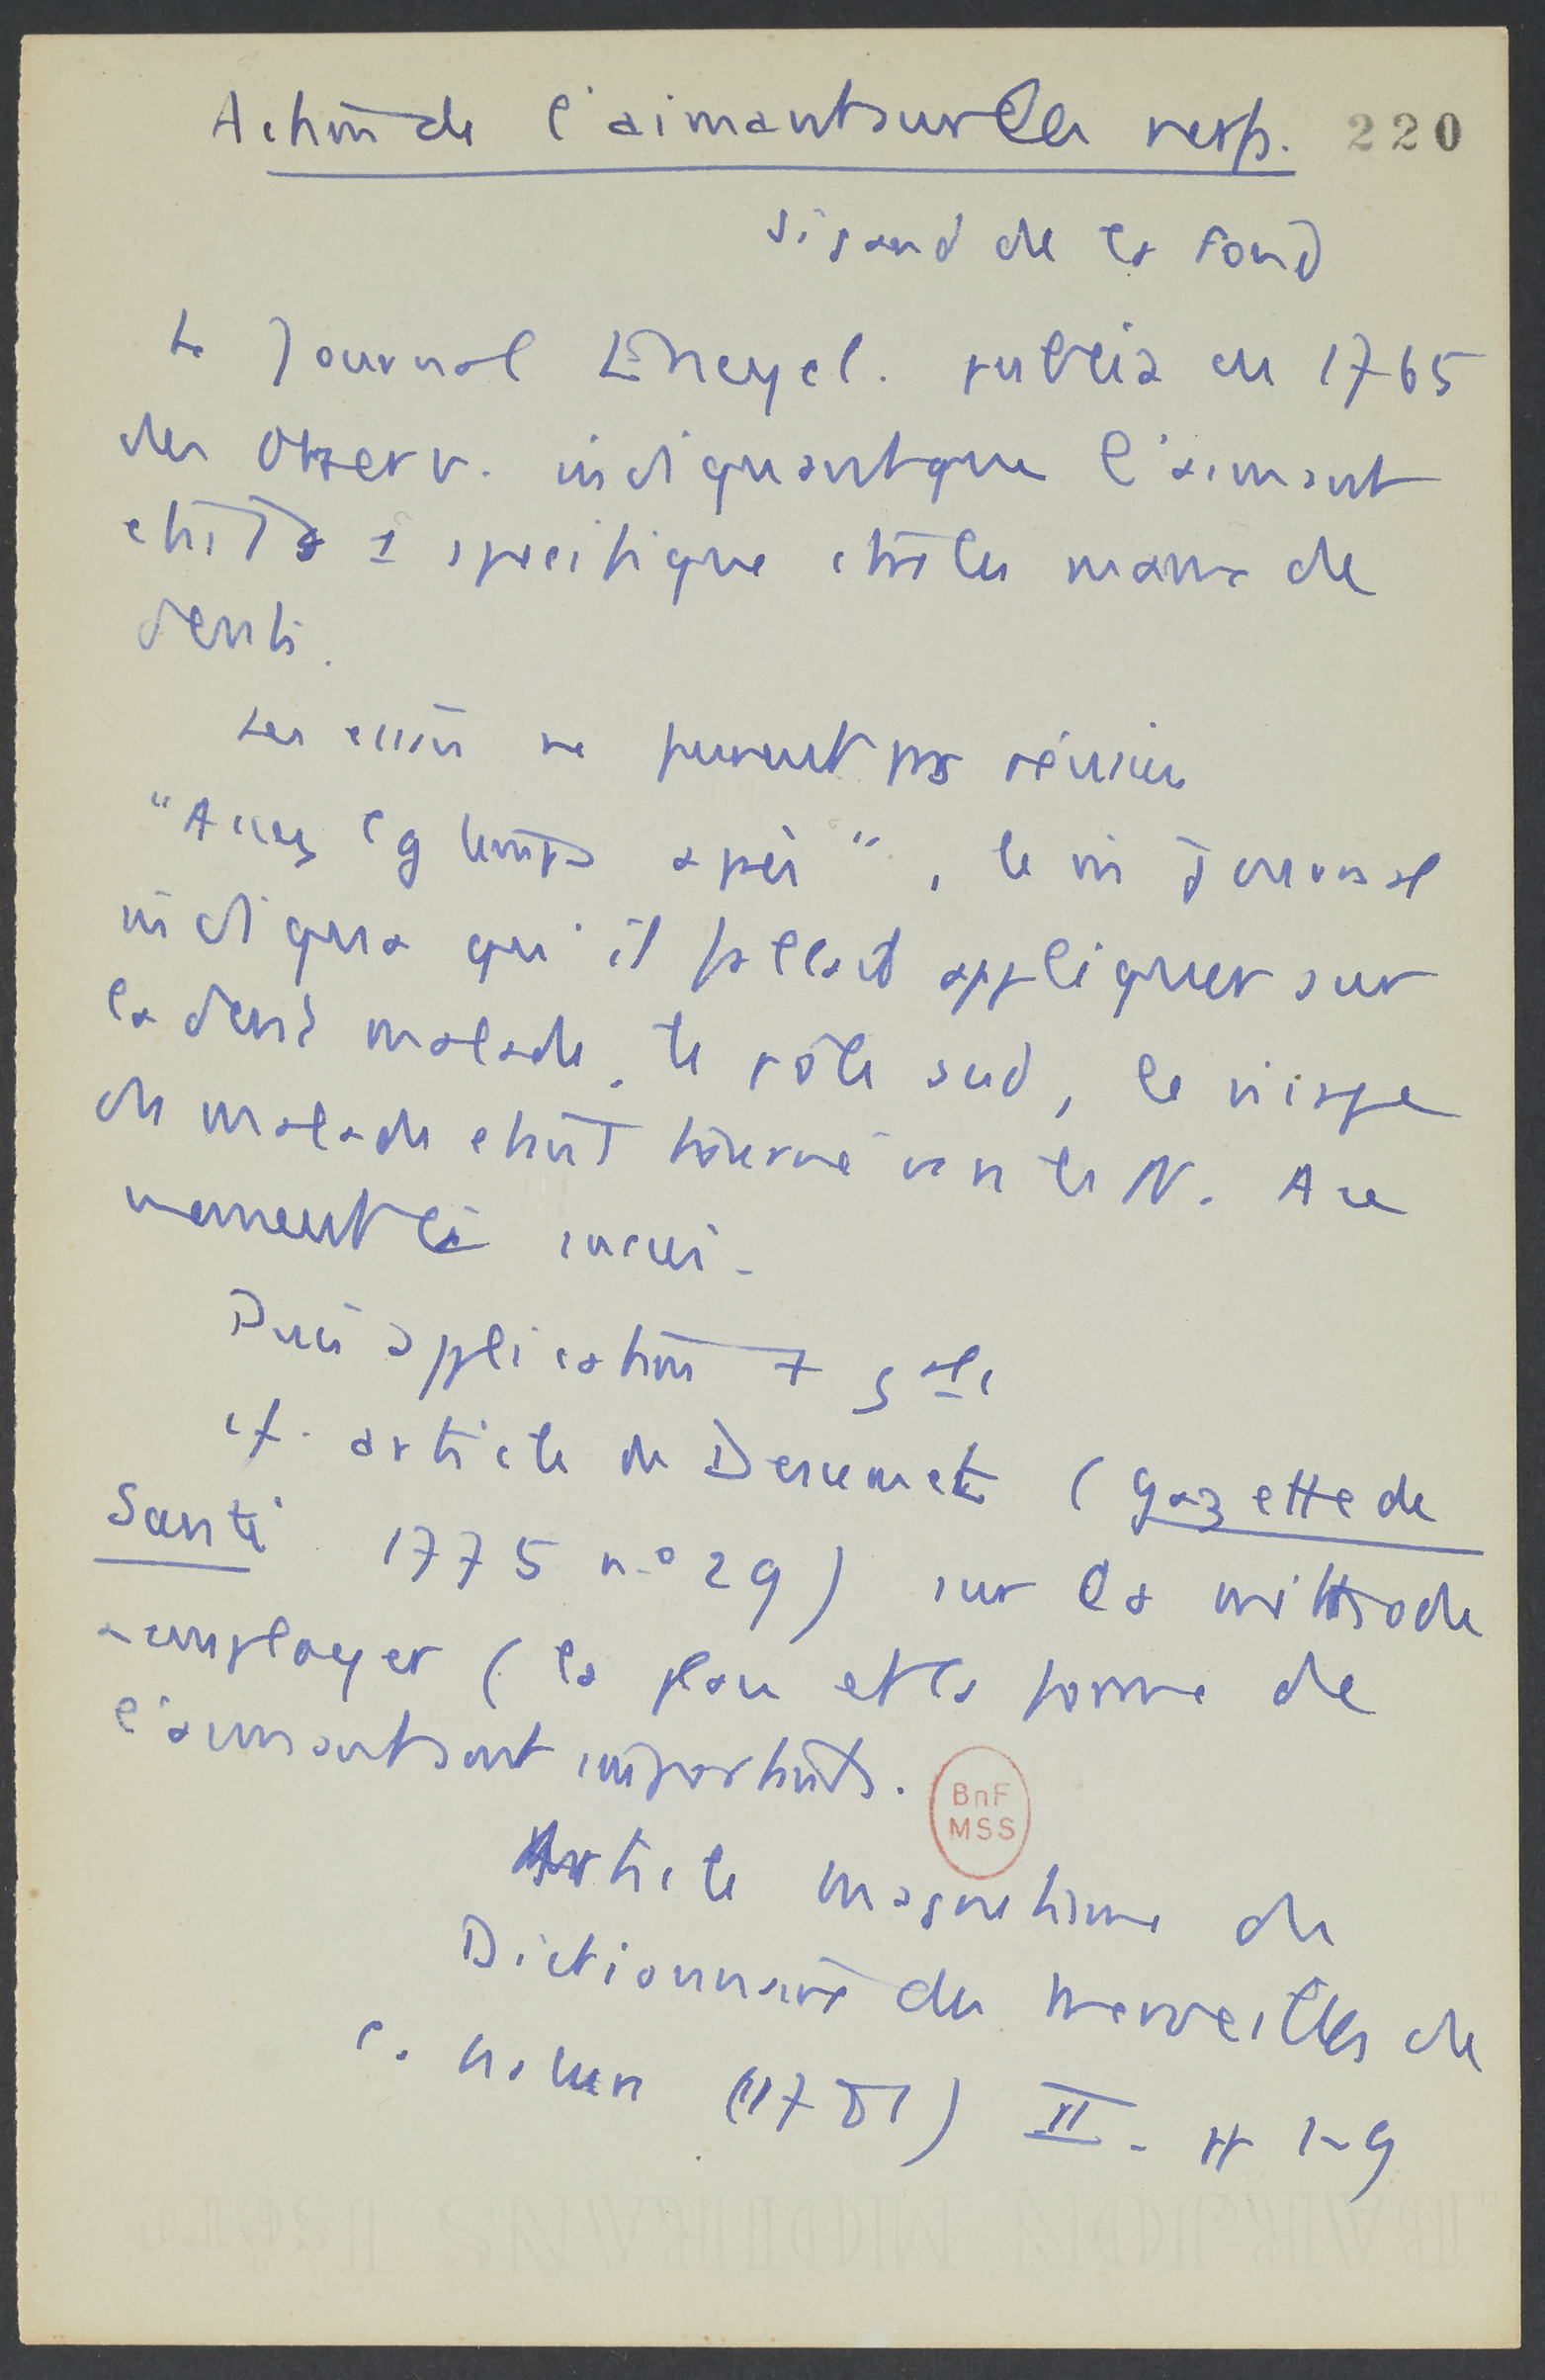 Action de l'aimant sur les resp.
220
Sigaud de la Fond
Le Journal Encycl. publia en 1765
des Observ. indiquant que l'aimant
était 1 spécifique ctre les maux de
dents.
Les essais ne purent pas réussir
"Assez lg temps après", le m Journal
indiqua qu'il fallait appliquer sur
la dent malade, le pôle sud, le visage
du malade étant tourné vers le N. A ce
moment là succès.
Puis application + gale
cf. article de Descemet (Gazette de
Santé 1775 n° 29) sur la méthode
à employer (la place et la forme de
l'aimant sont importants.
BnF
MSS
Article magnétisme du
Dictionnaire des Merveilles de
la nature (1781) II. pp 1-9